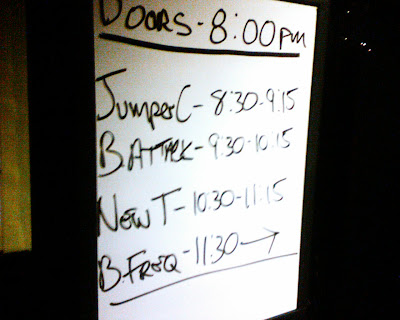 DOORS - 8:00pm
Jumper C - 8:30-9:15
B. ATTACK - 9:30-10:15
New T - 10:30-11:15
B. FREQ - 11:30 →